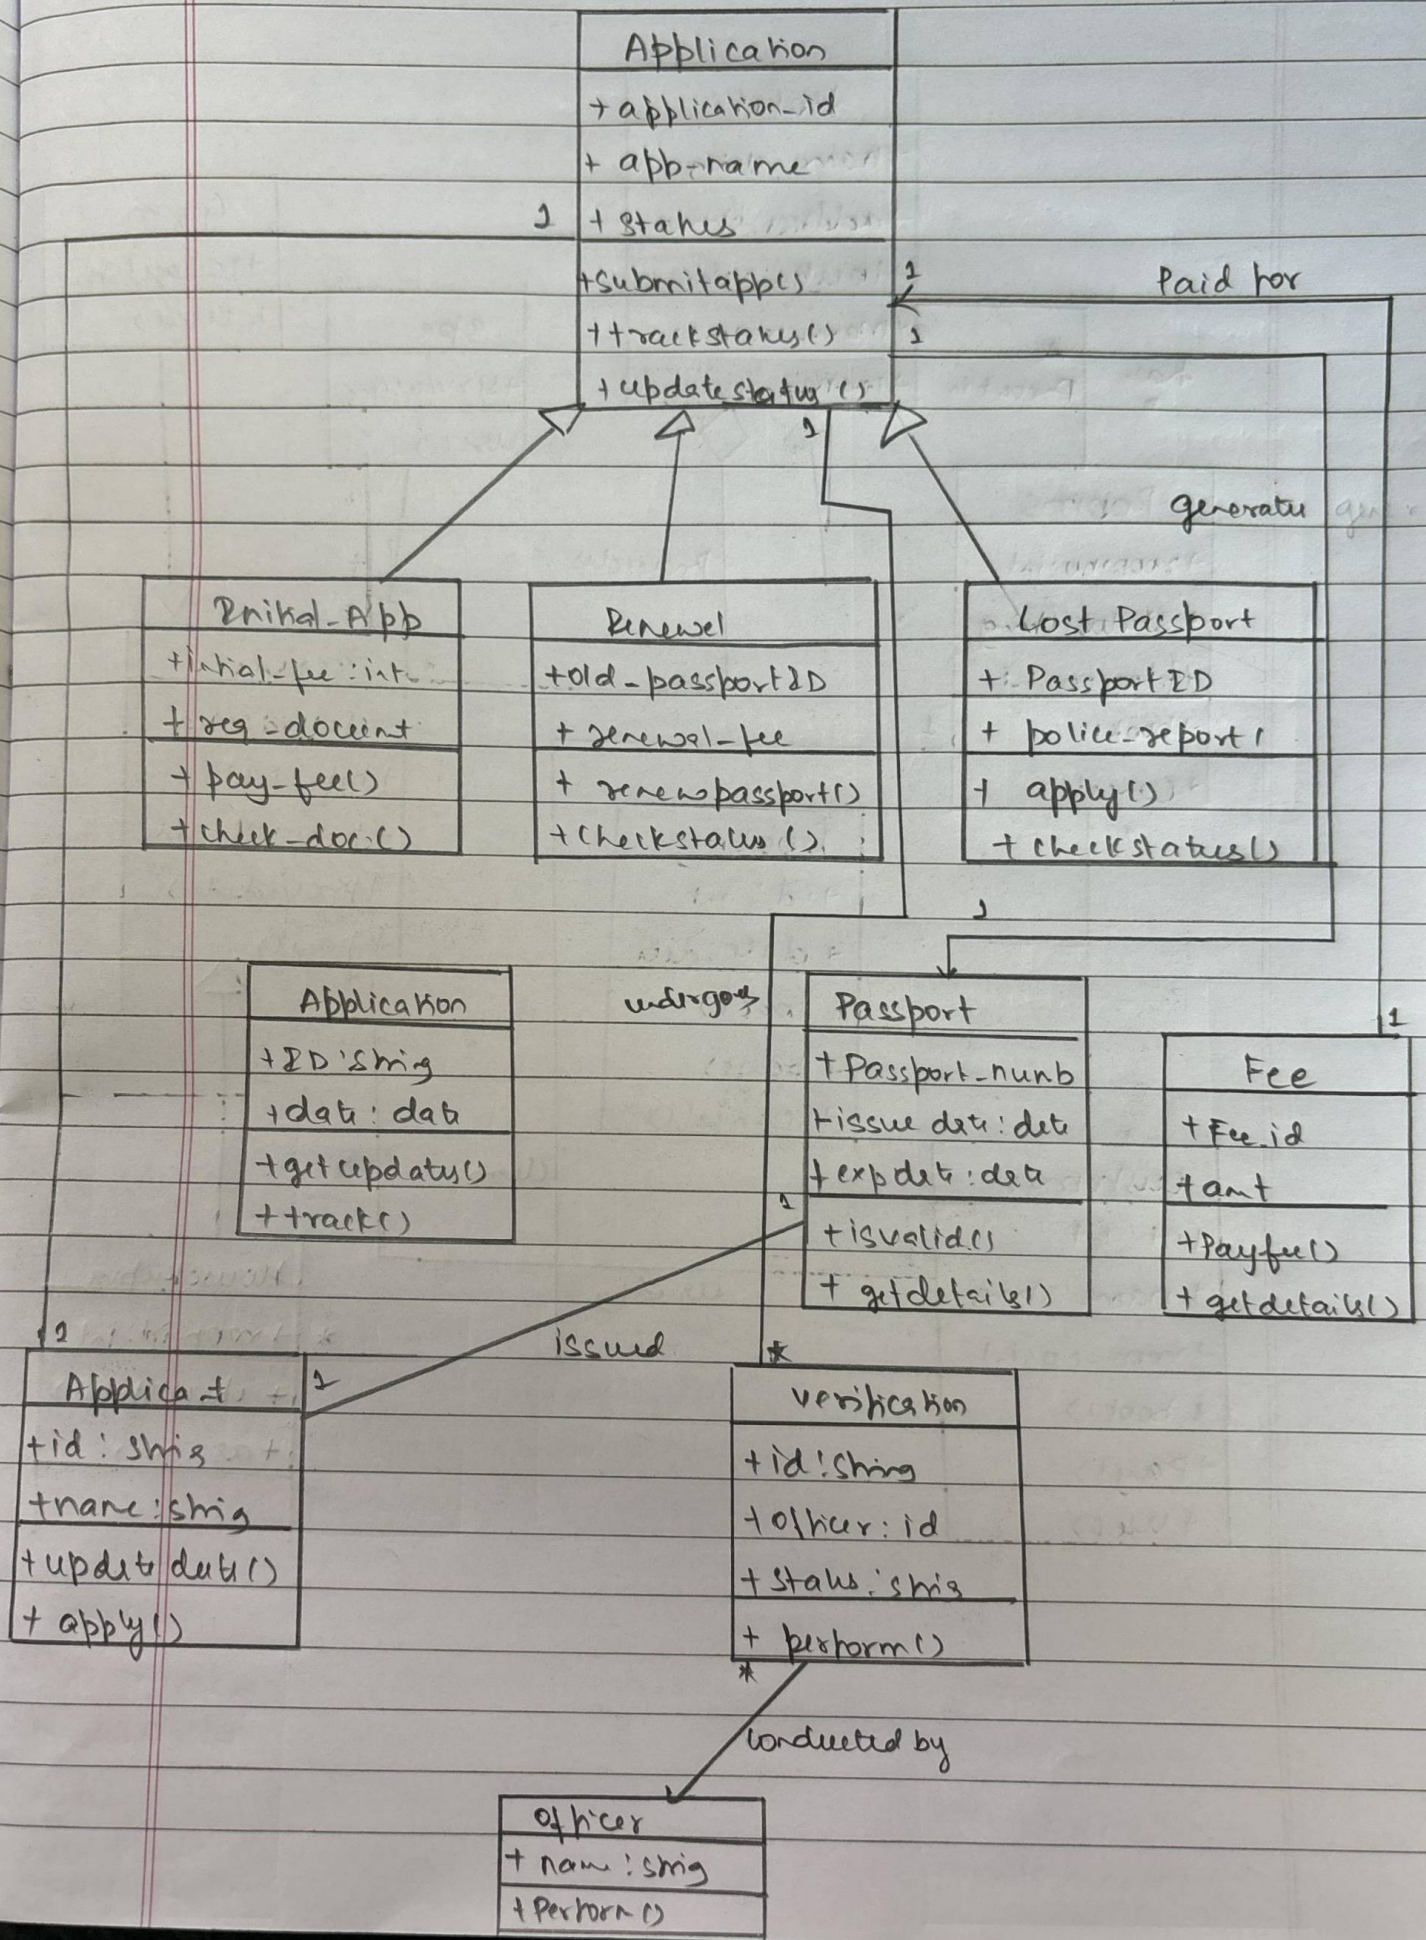 Application
+ application_id
+ app-name
1
+ status
+submitapp()
1
Paid for
+trackstatus()
1
+ updatestatus()
1
generates
Initial_App
+initial-fee : int
+ req-document
+ pay-fee()
+check-doc()
Renewel
+old-passportID
+ renewal-fee
+ renewpassport()
+checkstatus()
Lost Passport
+ PassportID
+ police-report
+ apply()
+ checkstatus()
1
Application
+ID:String
+date : date
+getupdates()
+track()
undergoes
Passport
+Passport-numb
+issue date : date
+expdate : date
1
+isvalid()
+ getdetails()
1
Fee
+Fee_id
+amt
+Payfee()
+ getdetails()
1
issued
*
Applicant
1
+id : string
+name : string
+update date()
+ apply()
verification
+id : String
+officer : id
+status : string
+ perform()
*
conducted by
officer
+ name : string
+Perform()